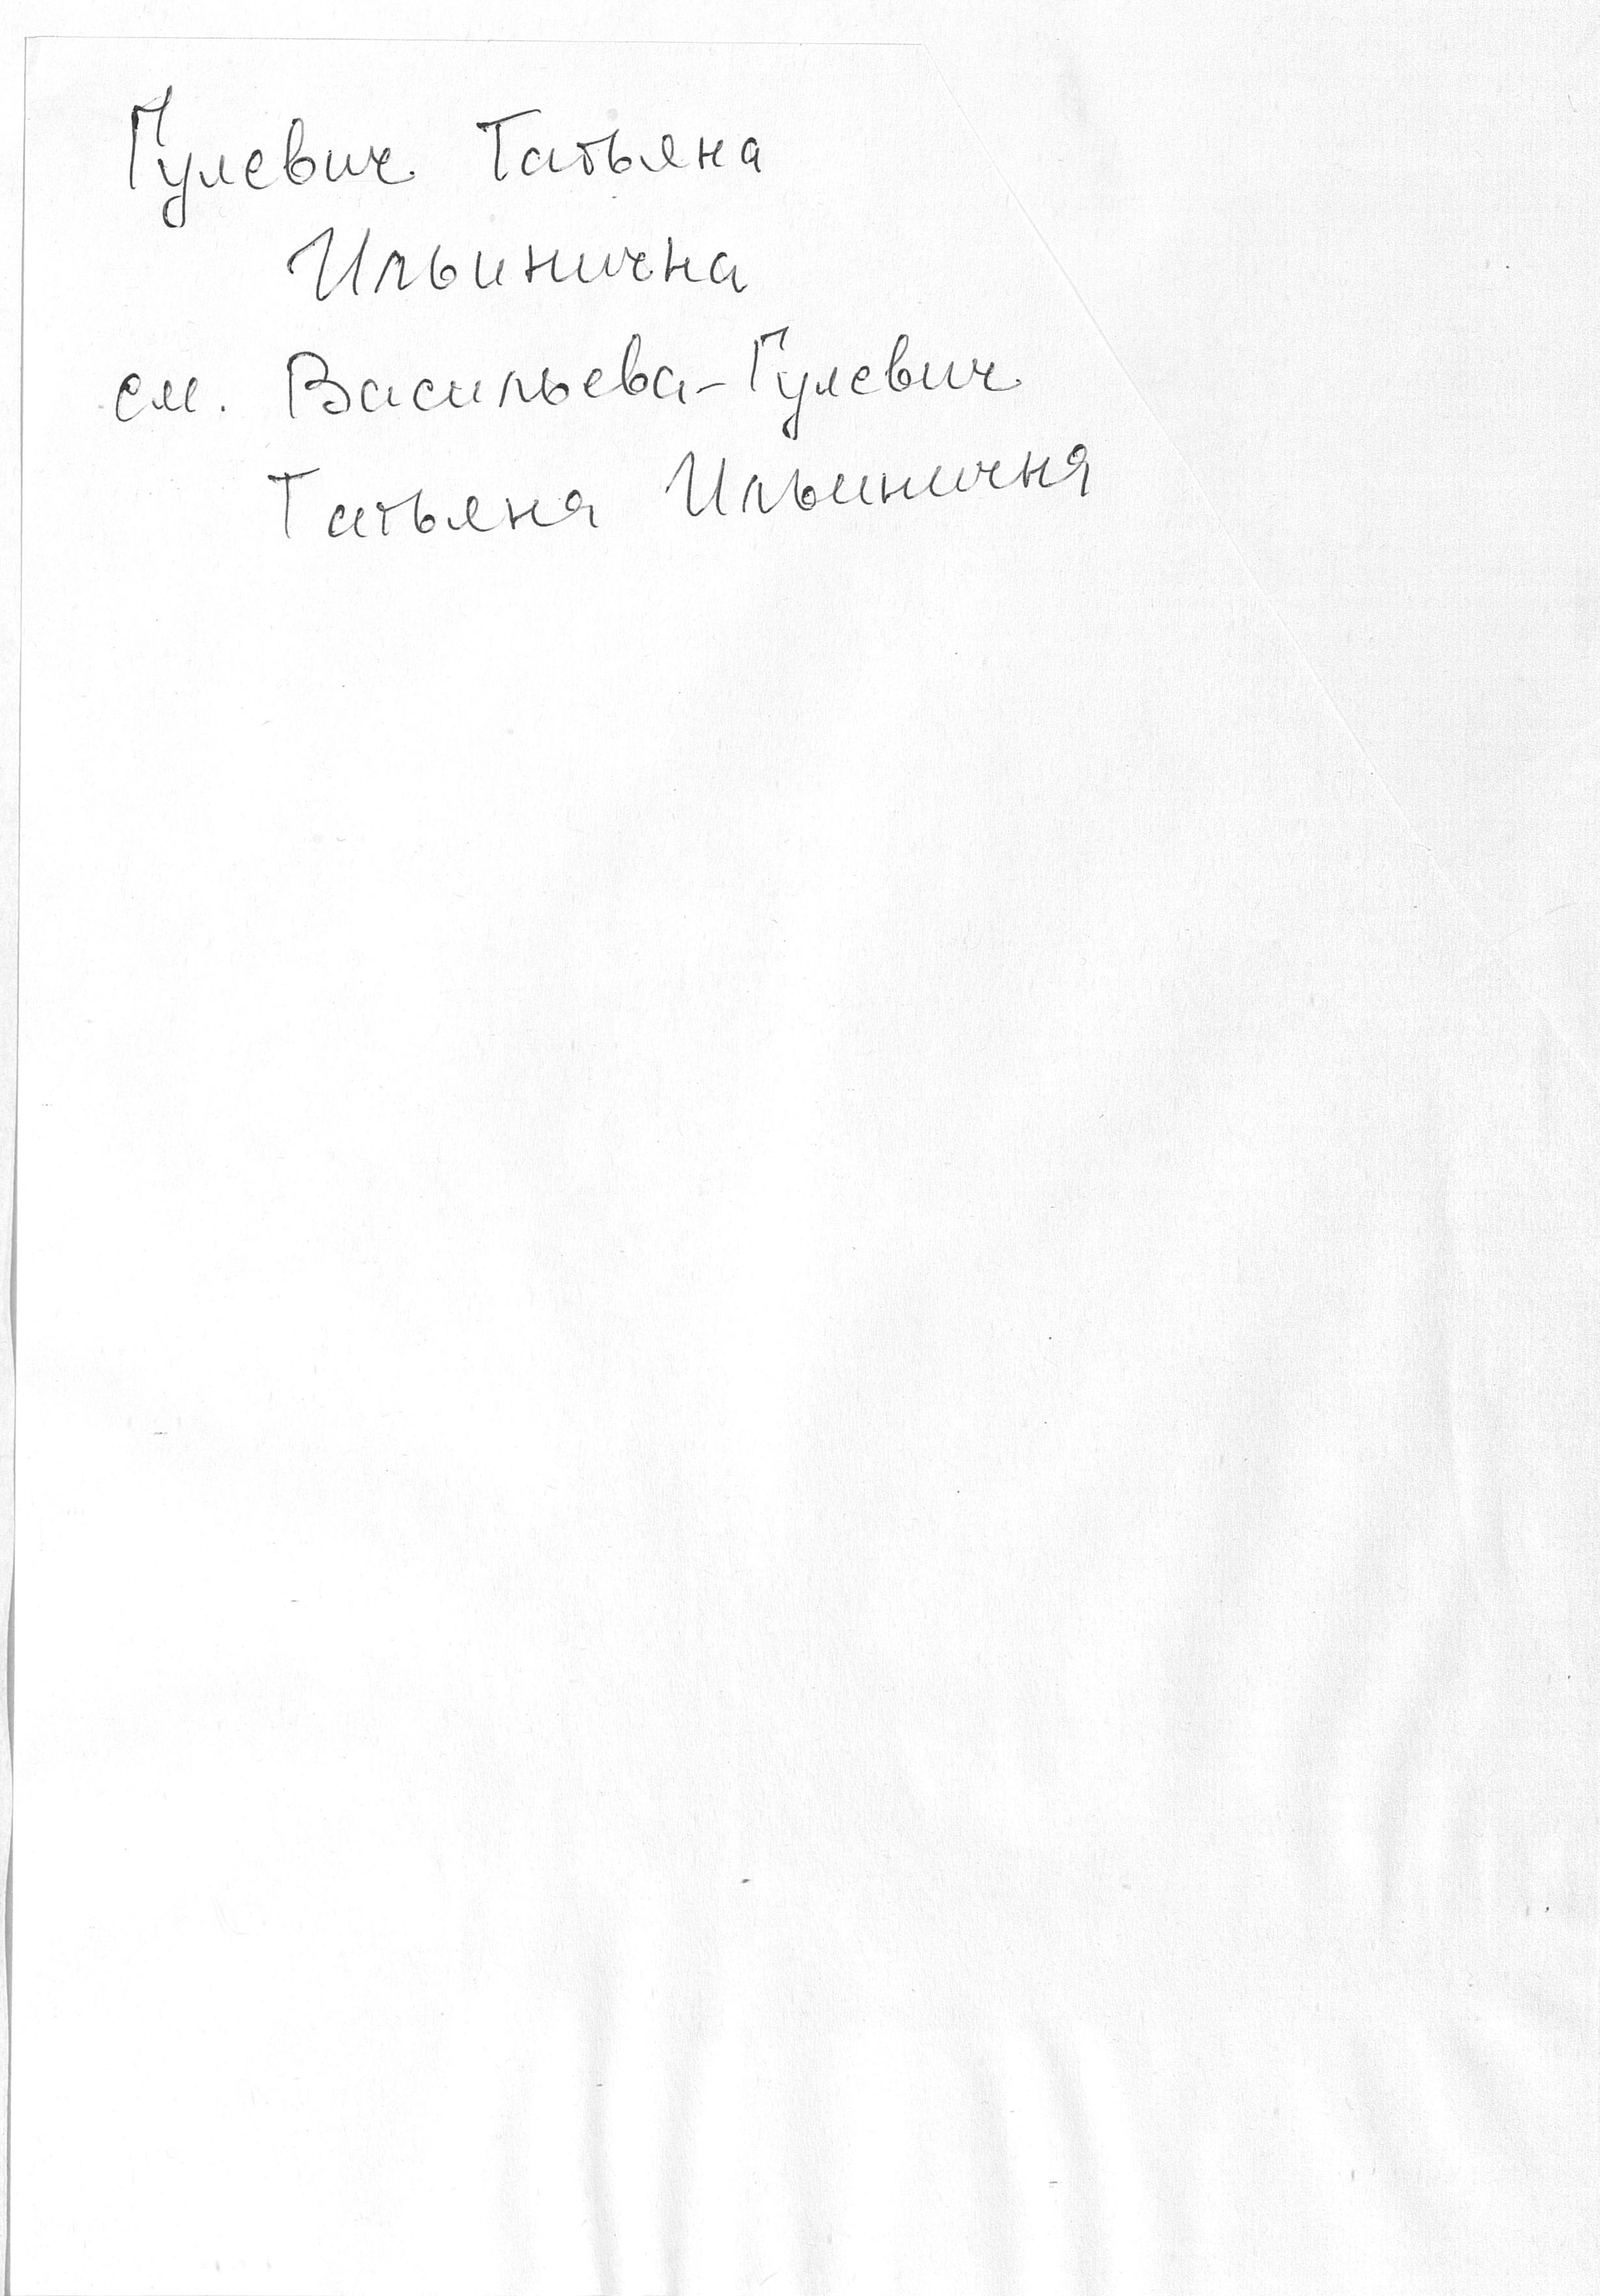 Гулевич Татьяна
Ильинична
см. Васильева-Гулевич
Татьяна Ильинична